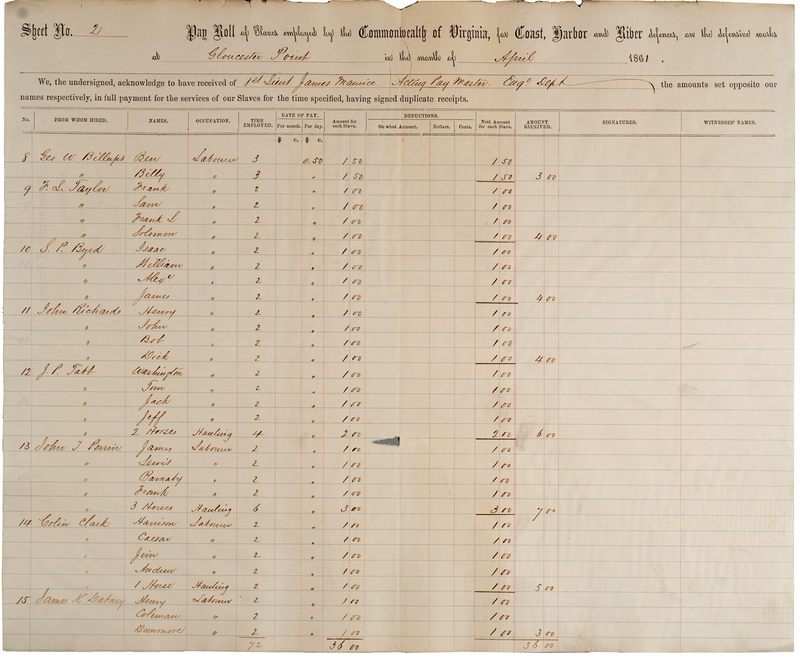 Sheet No. 2 Pay Roll of Slaves employed by the Commonwealth of Virginia, for Coast, Harbor and River defences, on the defensive works
at Gloucester Point in the month of April 1861.
We, the undersigned, acknowledge to have received of 1st Lieut James Maurice Acting Pay Master Engr Dept the amounts set opposite our
names respectively, in full payment for the services of our Slaves for the time specified, having signed duplicate receipts.
No. FROM WHOM HIRED. NAMES. OCCUPATION. TIME EMPLOYED. RATE OF PAY. Per month. Per day. Amount for each Slave. DEDUCTIONS. On what Account. Dollars. Cents. Nett Amount for each Slave. AMOUNT RECEIVED. SIGNATURES. WITNESSES' NAMES.
$ c. $ c.
8 Geo W. Billups Ben Labourer 3 0.50 1 50 1 50
" Billy " 3 " 1 50 1 50 3 00
9 F. L. Taylor Frank " 2 " 1 00 1 00
" Sam " 2 " 1 00 1 00
" Frank L " 2 " 1 00 1 00
" Solomon " 2 " 1 00 1 00 4 00
10 S. P. Byrd Isaac " 2 " 1 00 1 00
" William " 2 " 1 00 1 00
" Alexr " 2 " 1 00 1 00
" James " 2 " 1 00 1 00 4 00
11 John Richards Henry " 2 " 1 00 1 00
" John " 2 " 1 00 1 00
" Bob " 2 " 1 00 1 00
" Dick " 2 " 1 00 1 00 4 00
12 J. P. Tabb Washington " 2 " 1 00 1 00
" Tom " 2 " 1 00 1 00
" Jack " 2 " 1 00 1 00
" Jeff " 2 " 1 00 1 00
" 2 Horses Hauling 4 " 2 00 2 00 6 00
13 John T. Perrin James Labourer 2 " 1 00 1 00
" Lewis " 2 " 1 00 1 00
" Barnaby " 2 " 1 00 1 00
" Frank " 2 " 1 00 1 00
" 3 Horses Hauling 6 " 3 00 3 00 7 00
14 Colin Clark Harrison Labourer 2 " 1 00 1 00
" Caesar " 2 " 1 00 1 00
" Jim " 2 " 1 00 1 00
" Andrew " 2 " 1 00 1 00
" 1 Horse Hauling 2 " 1 00 1 00 5 00
15 James K Dabney Henry Labourer 2 " 1 00 1 00
" Coleman " 2 " 1 00 1 00
" Dunmore " 2 " 1 00 1 00 3 00
72 36 00 36 00